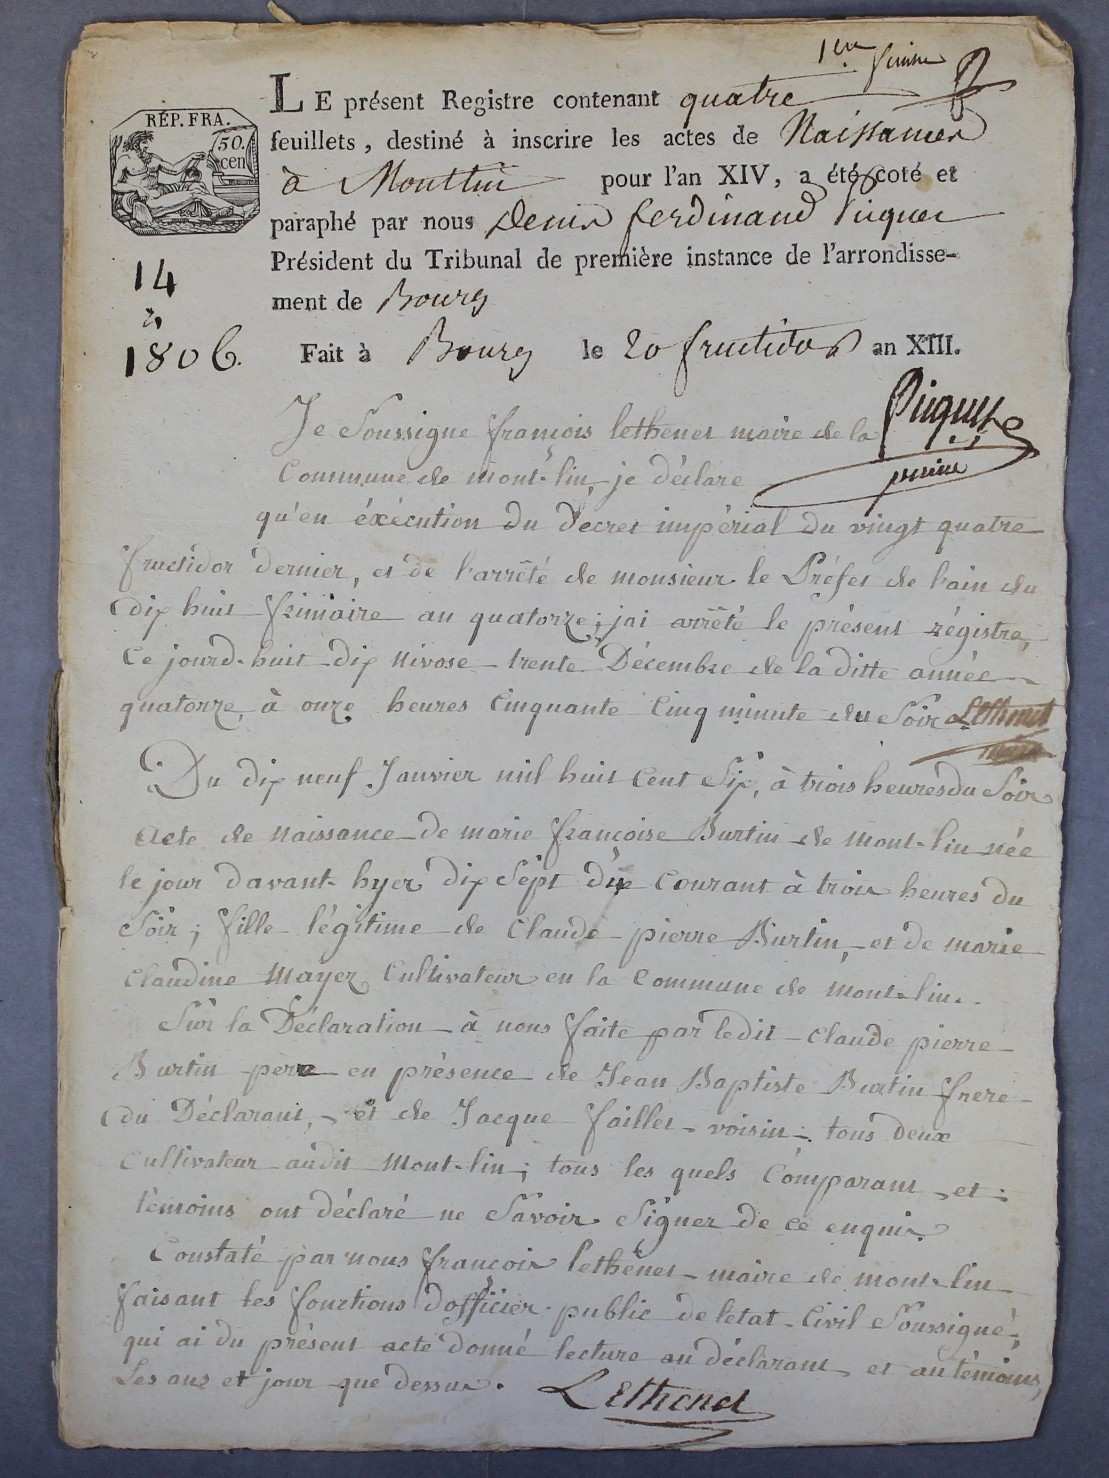 1er feuillet
LE présent Registre contenant quatre
RÉP. FRA.
50. cen
feuillets, destiné à inscrire les actes de Naissances
à Montlin pour l'an XIV, a été coté et
paraphé par nous Denis ferdinand Picquet
Président du Tribunal de première instance de l'arrondisse-
ment de Bourg
14
&
1806.
Fait à Bourg le 20 fructidor an XIII.
Picquet
Je Soussigne françois lethenet maire de la
Commune de mont-lin, je déclare
qu'en éxécution du Decret impérial du vingt quatre
fructidor dernier, et de l'arrêté de monsieur le Préfet de l'ain du
dix huit frimaire an quatorze; jai arrêté le présent régistre,
Ce jourd-huit dix Nivose trente Décembre de la ditte année
quatorze, à onze heures Cinquante Cinq minute du Soir Lethenet
maire
Du dix neuf Janvier mil huit Cent Six, à trois heures du Soir
Acte de Naissance de marie françoise Burtin de mont-lin née
le jour davant-hyer dix Sept du Courant à trois heures du
Soir; fille légitime de Claude pierre Burtin, et de marie
Claudine Mayer Cultivateur en la Commune de mont-lin.
Sur la Déclaration à nous faite par ledit Claude pierre
Burtin pere en présence de Jean Baptiste Burtin frere
du Déclarant, et de Jacque faillet voisin; tous deux
Cultivateur audit Mont-lin; tous les quels Comparant et
témoins ont déclaré ne Savoir Signer de ce enquis
Constaté par nous françois lethenet maire de mont-lin
faisant les fonctions d'officier public de letat Civil Soussigné,
qui ai du présent acte donné lecture au déclarant et au témoins,
Les ans et jour que dessus. Lethenet